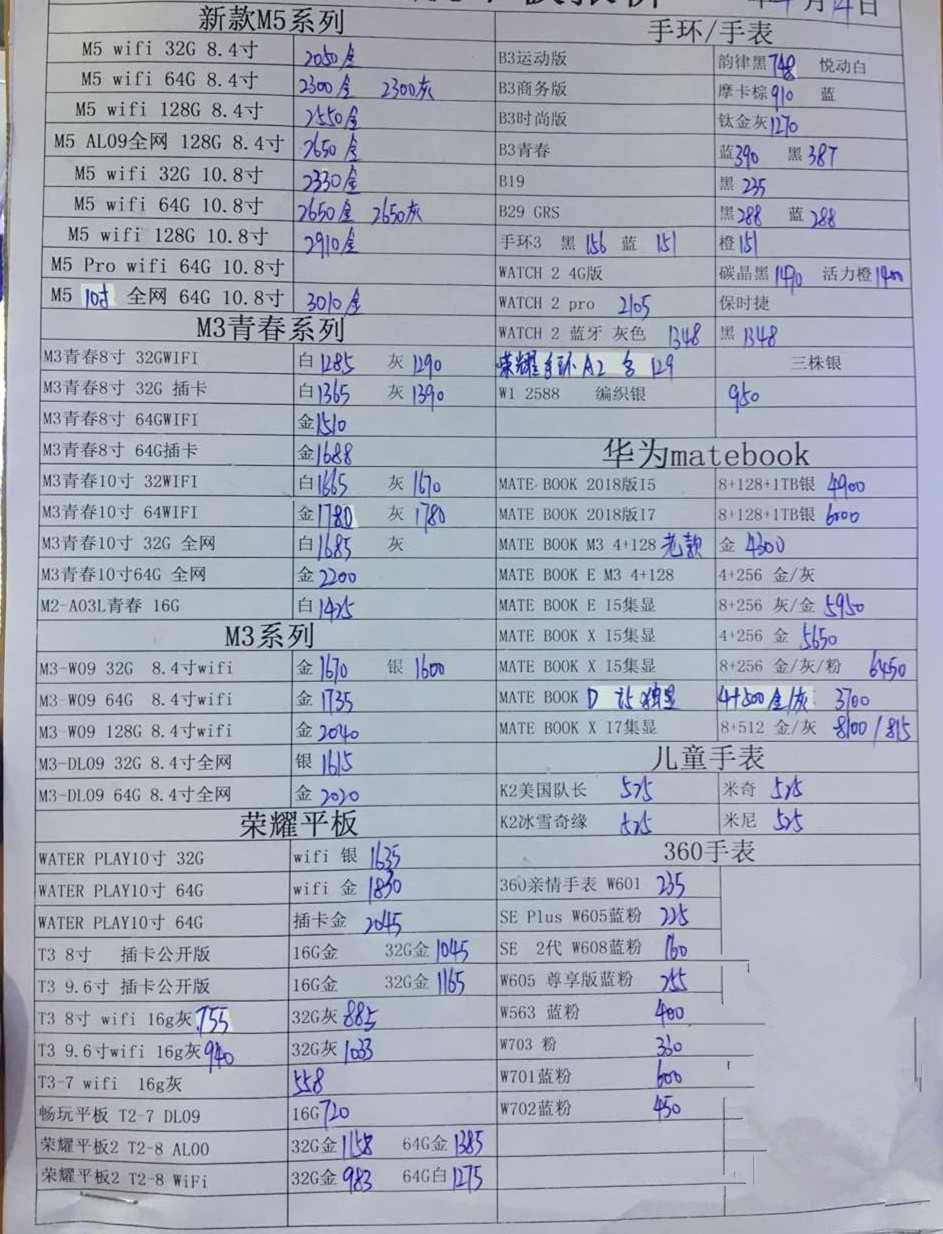 月14日
新款M5系列
M5 wifi 32G 8.4寸 2050金
M5 wifi 64G 8.4寸 2300金 2300灰
M5 wifi 128G 8.4寸 2550金
M5 AL09全网 128G 8.4寸 2650金
M5 wifi 32G 10.8寸 2330金
M5 wifi 64G 10.8寸 2650金 2650灰
M5 wifi 128G 10.8寸 2910金
M5 Pro wifi 64G 10.8寸
M5 10寸 全网 64G 10.8寸 3010金
M3青春系列
M3青春8寸 32GWIFI 白1285 灰1290
M3青春8寸 32G 插卡 白1365 灰1390
M3青春8寸 64GWIFI 金1510
M3青春8寸 64G插卡 金1688
M3青春10寸 32WIFI 白1665 灰1670
M3青春10寸 64WIFI 金1780 灰1780
M3青春10寸 32G 全网 白1685 灰
M3青春10寸64G 全网 金2200
M2-A03L青春 16G 白1425
M3系列
M3-W09 32G 8.4寸wifi 金1670 银1600
M3-W09 64G 8.4寸wifi 金1735
M3-W09 128G 8.4寸wifi 金2040
M3-DL09 32G 8.4寸全网 银1615
M3-DL09 64G 8.4寸全网 金2020
荣耀平板
WATER PLAY10寸 32G wifi 银1635
WATER PLAY10寸 64G wifi 金1830
WATER PLAY10寸 64G 插卡金 2045
T3 8寸 插卡公开版 16G金 32G金1045
T3 9.6寸 插卡公开版 16G金 32G金1165
T3 8寸 wifi 16g灰755 32G灰885
T3 9.6寸wifi 16g灰940 32G灰1033
T3-7 wifi 16g灰 558
畅玩平板 T2-7 DL09 16G720
荣耀平板2 T2-8 AL00 32G金1158 64G金1385
荣耀平板2 T2-8 WiFi 32G金983 64G白1275
手环/手表
B3运动版 韵律黑748 悦动白
B3商务版 摩卡棕910 蓝
B3时尚版 钛金灰1270
B3青春 蓝390 黑387
B19 黑235
B29 GRS 黑288 蓝288
手环3 黑156 蓝151 橙151
WATCH 2 4G版 碳晶黑1490 活力橙1400
WATCH 2 pro 2105 保时捷
WATCH 2 蓝牙 灰色 1348 黑1348
荣耀手环A2 129 三株银
W1 2588 编织银 950
华为matebook
MATE BOOK 2018版I5 8+128+1TB银 4900
MATE BOOK 2018版I7 8+128+1TB银 6000
MATE BOOK M3 4+128 老款 金 4300
MATE BOOK E M3 4+128 4+256 金/灰
MATE BOOK E I5集显 8+256 灰/金 5950
MATE BOOK X I5集显 4+256 金 5650
MATE BOOK X I5集显 8+256 金/灰/粉 6450
MATE BOOK D I5 独显 4+500金/灰 3700
MATE BOOK X I7集显 8+512 金/灰 8100/815
儿童手表
K2美国队长 525 米奇 525
K2冰雪奇缘 525 米尼 525
360手表
360亲情手表 W601 235
SE Plus W605蓝粉 225
SE 2代 W608蓝粉 160
W605 尊享版蓝粉 255
W563 蓝粉 400
W703 粉 330
W701蓝粉 600
W702蓝粉 450